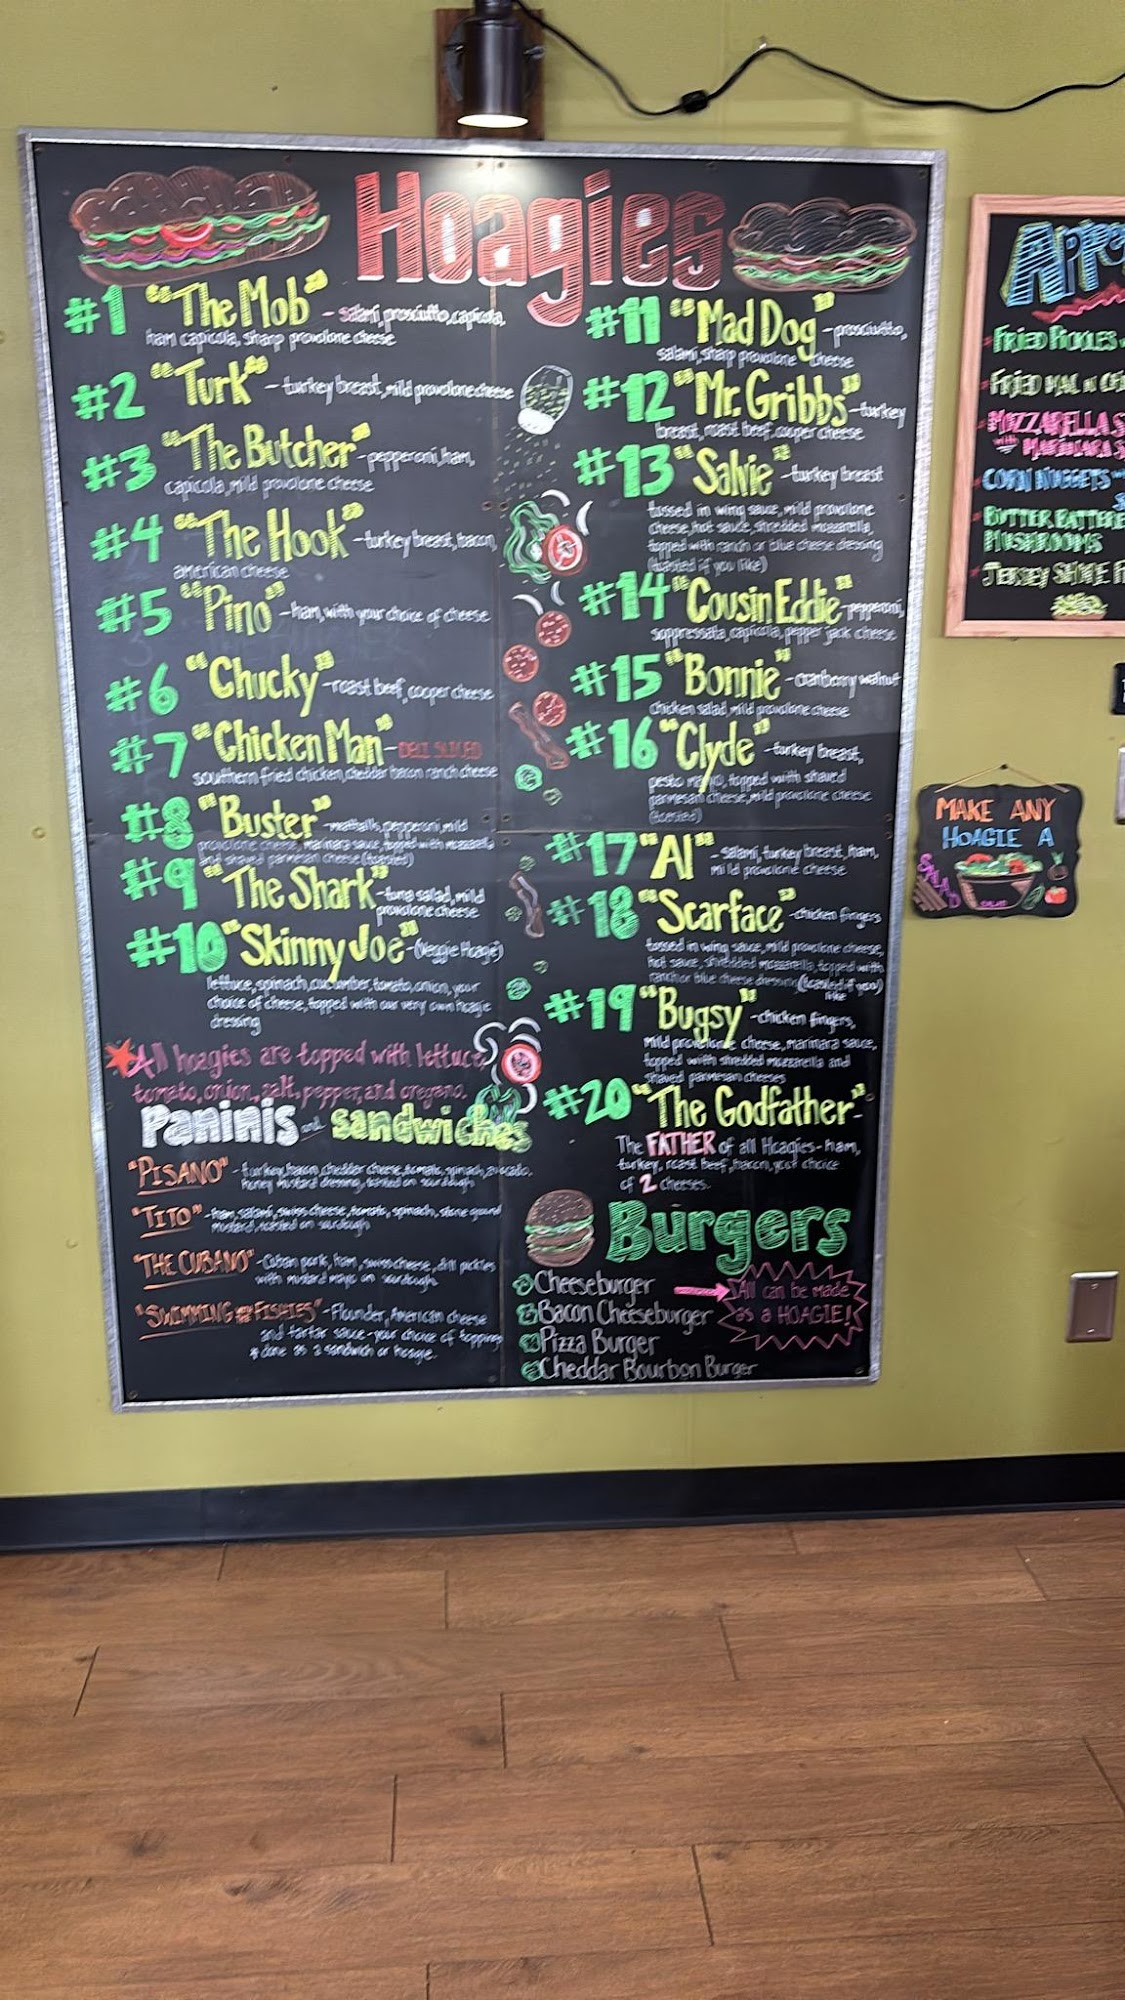 Hoagies
#1 "The Mob" - salami, prosciutto, capicola,
ham capicola, sharp provolone cheese
#2 "Turk" - turkey breast, mild provolone cheese
#3 "The Butcher" - pepperoni, ham,
capicola, mild provolone cheese
#4 "The Hook" - turkey breast, bacon,
american cheese
#5 "Pino" - ham, with your choice of cheese
#6 "Chucky" - roast beef, cooper cheese
#7 "Chicken Man" - DELI SLICED
southern fried chicken, cheddar bacon ranch cheese
#8 "Buster" - meatballs, pepperoni, mild
provolone cheese, marinara sauce, topped with mozzarella
and shaved parmesan cheese (toasted)
#9 "The Shark" - tuna salad, mild
provolone cheese
#10 "Skinny Joe" - (Veggie Hoagie)
lettuce, spinach, cucumber, tomato, onion, your
choice of cheese, topped with our very own hoagie
dressing
All hoagies are topped with lettuce,
tomato, onion, salt, pepper, and oregano.
Paninis and Sandwiches
"PISANO" - turkey, bacon, cheddar cheese, tomato, spinach, avocado,
honey mustard dressing, toasted on sourdough
"TITO" - ham, salami, swiss cheese, tomato, spinach, stone ground
mustard, toasted on sourdough
"THE CUBANO" - Cuban pork, ham, swiss cheese, dill pickles
with mustard mayo on sourdough
"SWIMMING FISHIES" - Flounder, American cheese
and tartar sauce - your choice of toppings
& done as a sandwich or hoagie.
#11 "Mad Dog" - prosciutto,
salami, sharp provolone cheese
#12 "Mr. Gribbs" - turkey
breast, roast beef, cooper cheese
#13 "Salvie" - turkey breast
tossed in wing sauce, mild provolone
cheese, hot sauce, shredded mozzarella,
topped with ranch or blue cheese dressing
(toasted if you like)
#14 "Cousin Eddie" - pepperoni,
soppressata, capicola, pepper jack cheese
#15 "Bonnie" - cranberry walnut
chicken salad, mild provolone cheese
#16 "Clyde" - turkey breast,
pesto mayo, topped with shaved
parmesan cheese, mild provolone cheese
(toasted)
#17 "Al" - salami, turkey breast, ham,
mild provolone cheese
#18 "Scarface" - chicken fingers
tossed in wing sauce, mild provolone cheese,
hot sauce, shredded mozzarella, topped with
ranch or blue cheese dressing (toasted if you
like)
#19 "Bugsy" - chicken fingers,
mild provolone cheese, marinara sauce,
topped with shredded mozzarella and
shaved parmesan cheeses
#20 "The Godfather" -
The FATHER of all Hoagies - ham,
turkey, roast beef, bacon, your choice
of 2 cheeses.
Burgers
Cheeseburger
Bacon Cheeseburger
Pizza Burger
Cheddar Bourbon Burger
All can be made
as a HOAGIE!
FRIED PICKLES
FRIED MAC
MOZZARELLA
with MARINARA
CORN NUGGETS
BUTTER
MUSHROOMS
JERSEY
MAKE ANY
HOAGIE A
SALAD